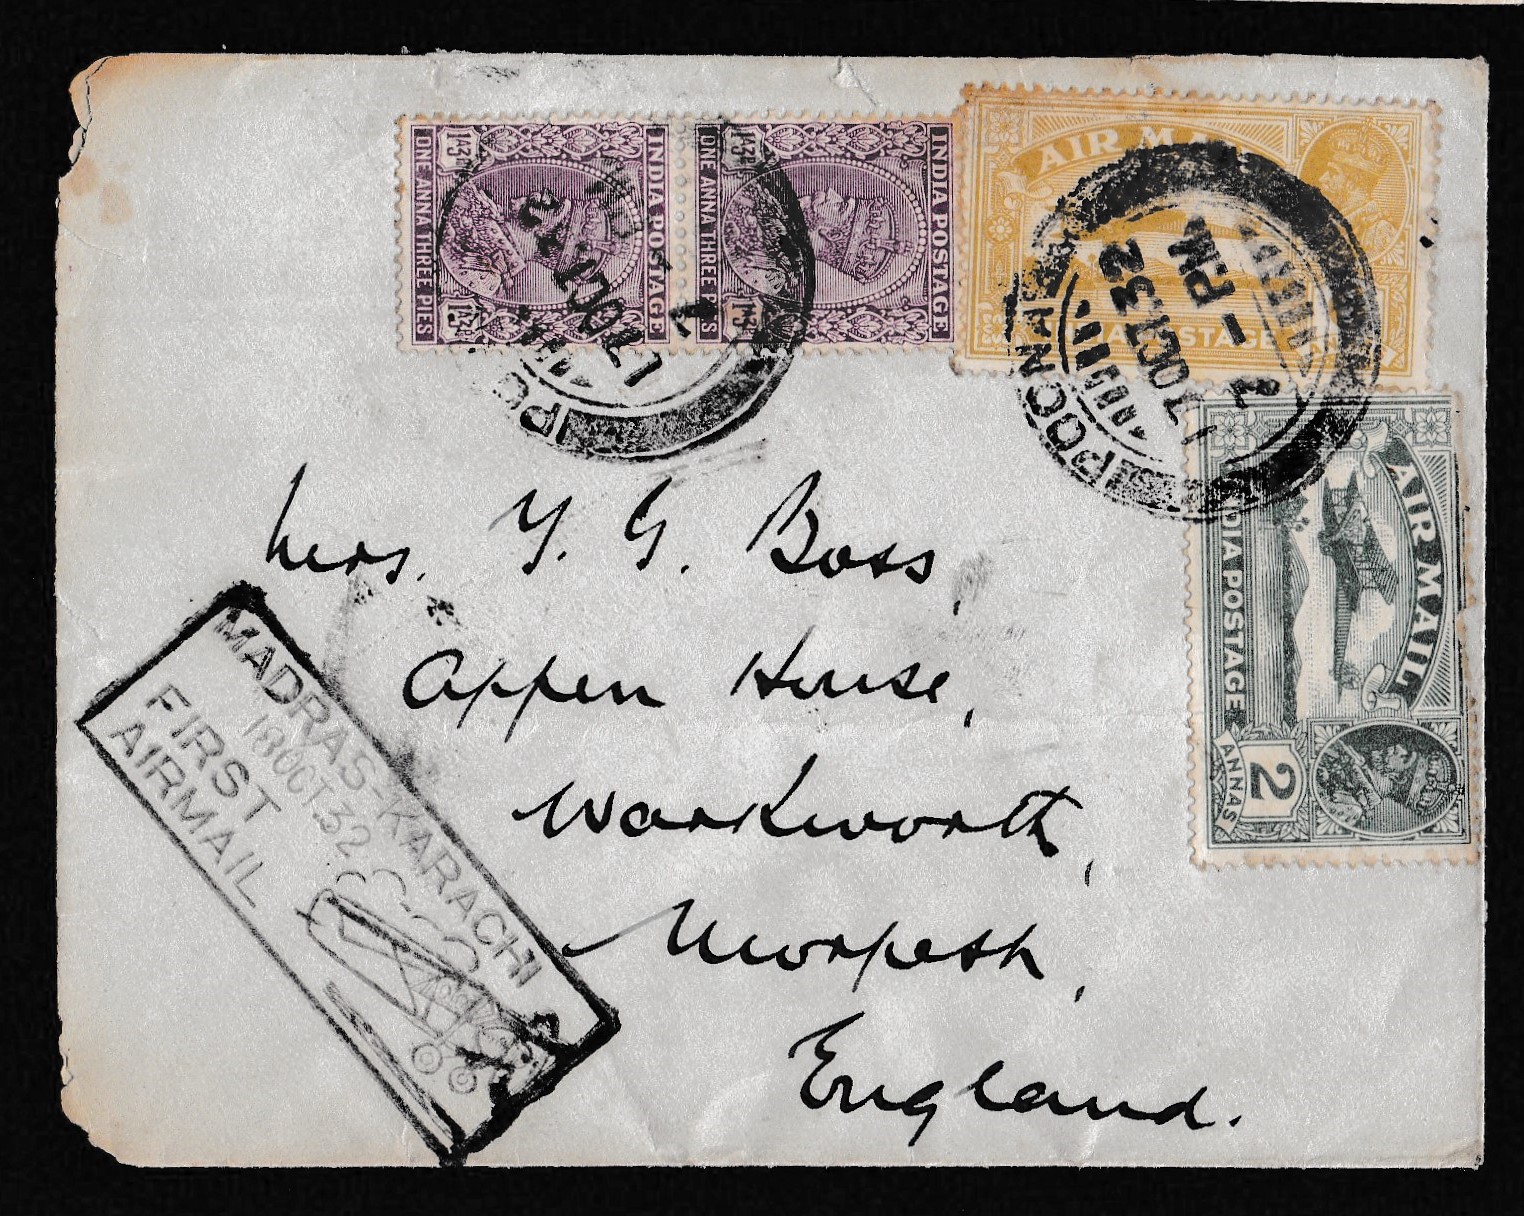 INDIA POSTAGE
ONE ANNA THREE PIES
INDIA POSTAGE
ONE ANNA THREE PIES
AIR MAIL
INDIA POSTAGE
POONA
17 OCT 32
POONA
2 - PM
17 OCT 32
AIR MAIL
INDIA POSTAGE
2
ANNAS
Mrs. Y. G. Boss,
Appen House,
Warkworth,
Morpeth,
England.
MADRAS-KARACHI
18 OCT. 32
FIRST
AIRMAIL